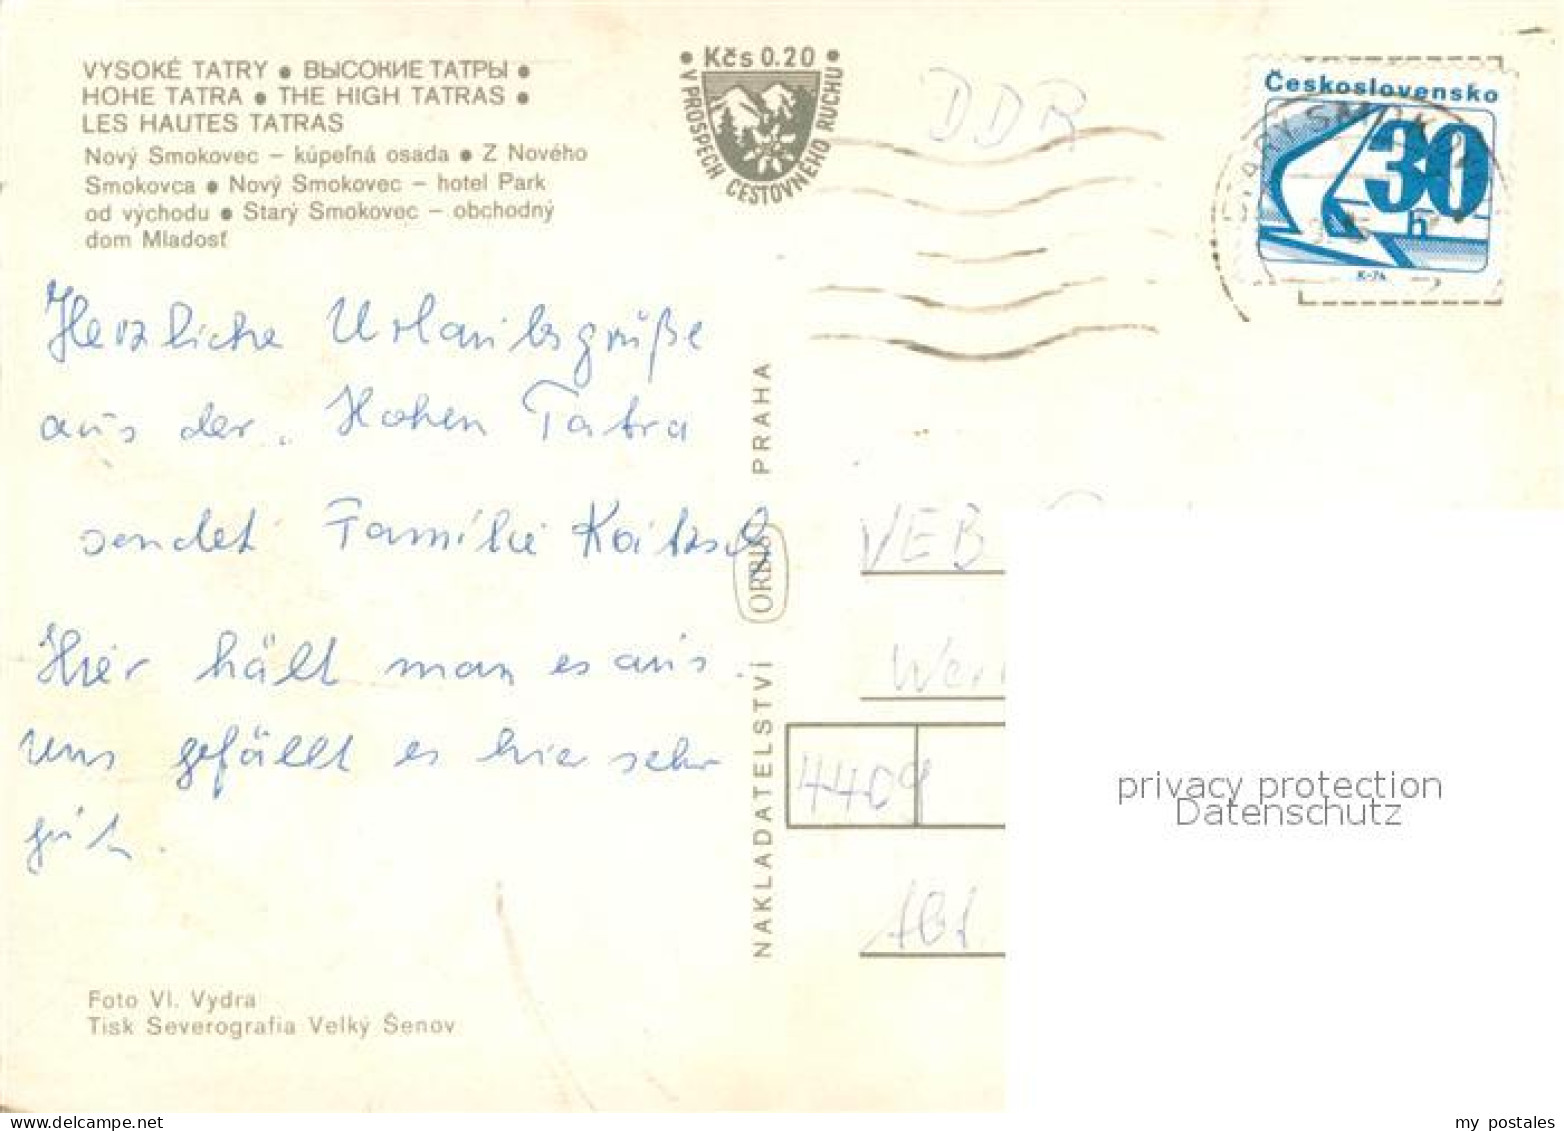 VYSOKÉ TATRY ● ВЫСОКИЕ ТАТРЫ ●
HOHE TATRA ● THE HIGH TATRAS ●
LES HAUTES TATRAS
Nový Smokovec – kúpeľná osada ● Z Nového
Smokovca ● Nový Smokovec – hotel Park
od východu ● Starý Smokovec – obchodný
dom Mladosť
● Kčs 0.20 ●
V PROSPECH CESTOVNÉHO RUCHU
DDR
Československo
30
h
K-74
STARÝ SMOKOVEC
Herzliche Urlaubsgrüße
aus der Hohen Tatra
sendet Familie
Hier hält man es aus.
Uns gefällt es hier sehr
gut.
NAKLADATELSTVÍ ORBIS PRAHA
VEB
4409
Foto Vl. Vydra
Tisk Severografia Velký Šenov
privacy protection
Datenschutz
my postales